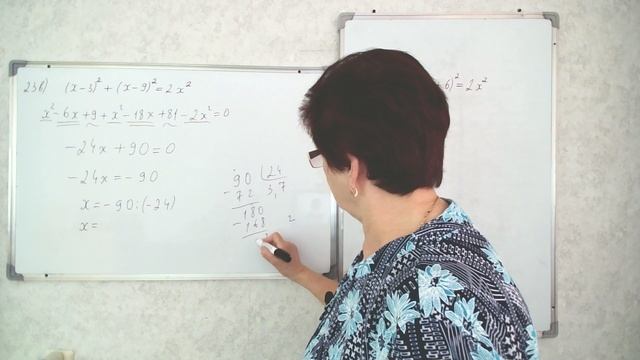 23б) (x-3)² + (x-9)² = 2x²
x² - 6x + 9 + x² - 18x + 81 - 2x² = 0
-24x + 90 = 0
-24x = -90
x = -90:(-24)
x =
90 24
- 72 3,7
180
- 168 2
6)² = 2x²